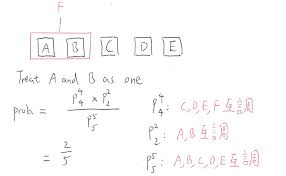 F
A B C D E
Treat A and B as one
prob. = (P^4_4 × P^2_2) / P^5_5
P^4_4 : C,D,E,F互調
= 2/5
P^2_2 : A,B互調
P^5_5 : A,B,C,D,E互調